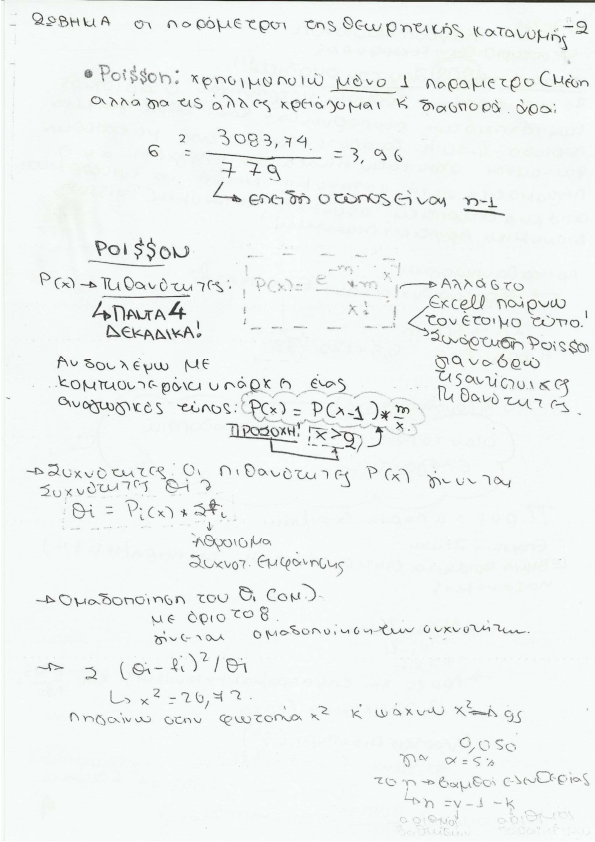 ΖΩΒΗΜΑ οι παράμετροι της θεωρητικής κατανομής -2
• Poi$$on: χρησιμοποιώ μόνο 1 παράμετρο (μέση
αλλά για τις άλλες χρειάζομαι κ διασπορά. άρα:
6² = 3083,74 / 779 = 3,96
↳ επειδή ο τύπος είναι n-1
POI$$ON
P(x) → Πιθανότητες:
↳ ΠΑΝΤΑ 4
ΔΕΚΑΔΙΚΑ!
P(x) = e^-m * m^x / x!
→ Αλλά στο
Excell παίρνω
τον έτοιμο τύπο!
Συνάρτηση Poi$$on
για να βρω
τις αντίστοιχες
Πιθανότητες.
Αν δουλεύω ΜΕ
κομπιουτεράκι υπάρχει ένας
αναγωγικός τύπος: P(x) = P(x-1) * m/x
ΠΡΟΣΟΧΗ! x>0
→ Συχνότητες: οι πιθανότητες P(x) γίνονται
Συχνότητες θi
θi = Pi(x) * Σfi
Άθροισμα
Συχνοτ. Εμφάνισης
→ Ομαδοποίηση του θi (ομ.)
με όριο το 8.
γίνεται ομαδοποίηση των συχνοτήτων.
→ Σ (θi - fi)² / θi
↳ x² = 20,72.
πηγαίνω στην φωτοτυπία x² κ ψάχνω x²
0,050
για α = 5%
το n → βαθμοί ελευθερίας
↳ n = ν - 1 - κ
αριθμός αριθμός